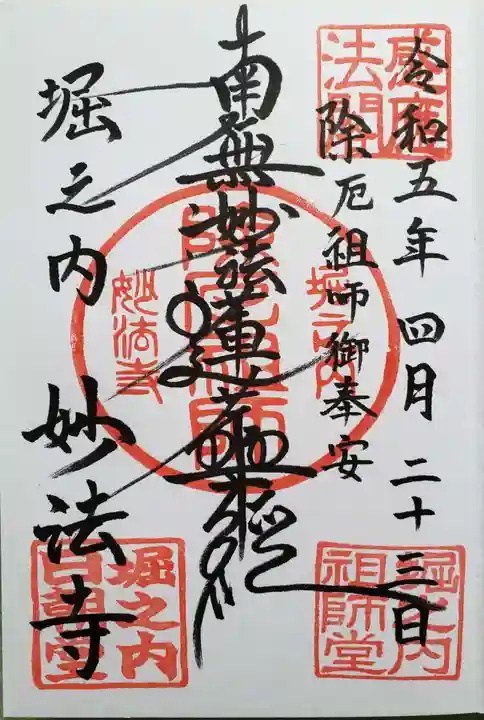 令和五年四月二十三日
除厄祖師御奉安
南無妙法蓮華経
堀之内妙法寺
感應
法閣
除厄祖師
堀之内
妙法寺
堀之内
祖師堂
堀之内
日朝堂